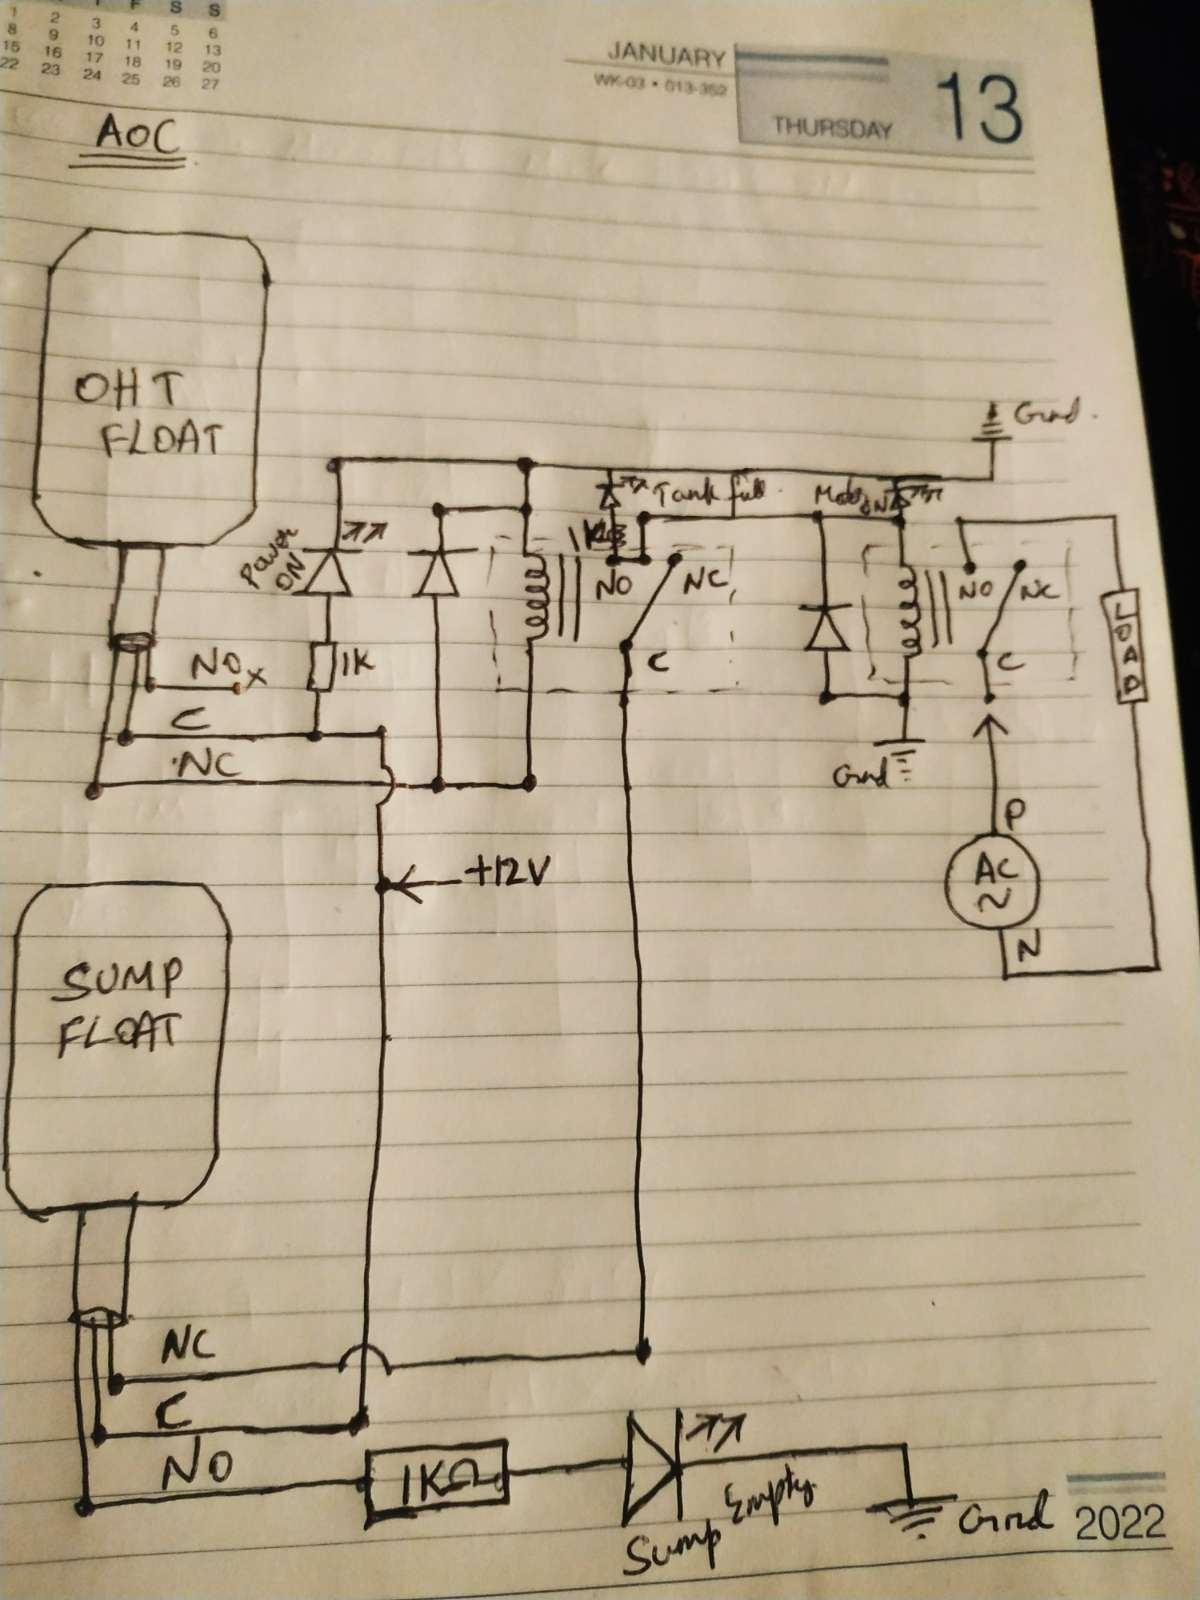 F S S
1 2 3 4 5 6
8 9 10 11 12 13
15 16 17 18 19 20
22 23 24 25 26 27
JANUARY
WK-03 • 013-352
THURSDAY
13
AOC
OHT
FLOAT
Grnd.
Tank full
ON
Power
ON
1K
NO
NC
C
NO
NC
C
LOAD
NOx
1K
C
NC
Grnd
P
AC
~
N
+12V
SUMP
FLOAT
NC
C
NO
1KΩ
Sump Empty
Grnd
2022